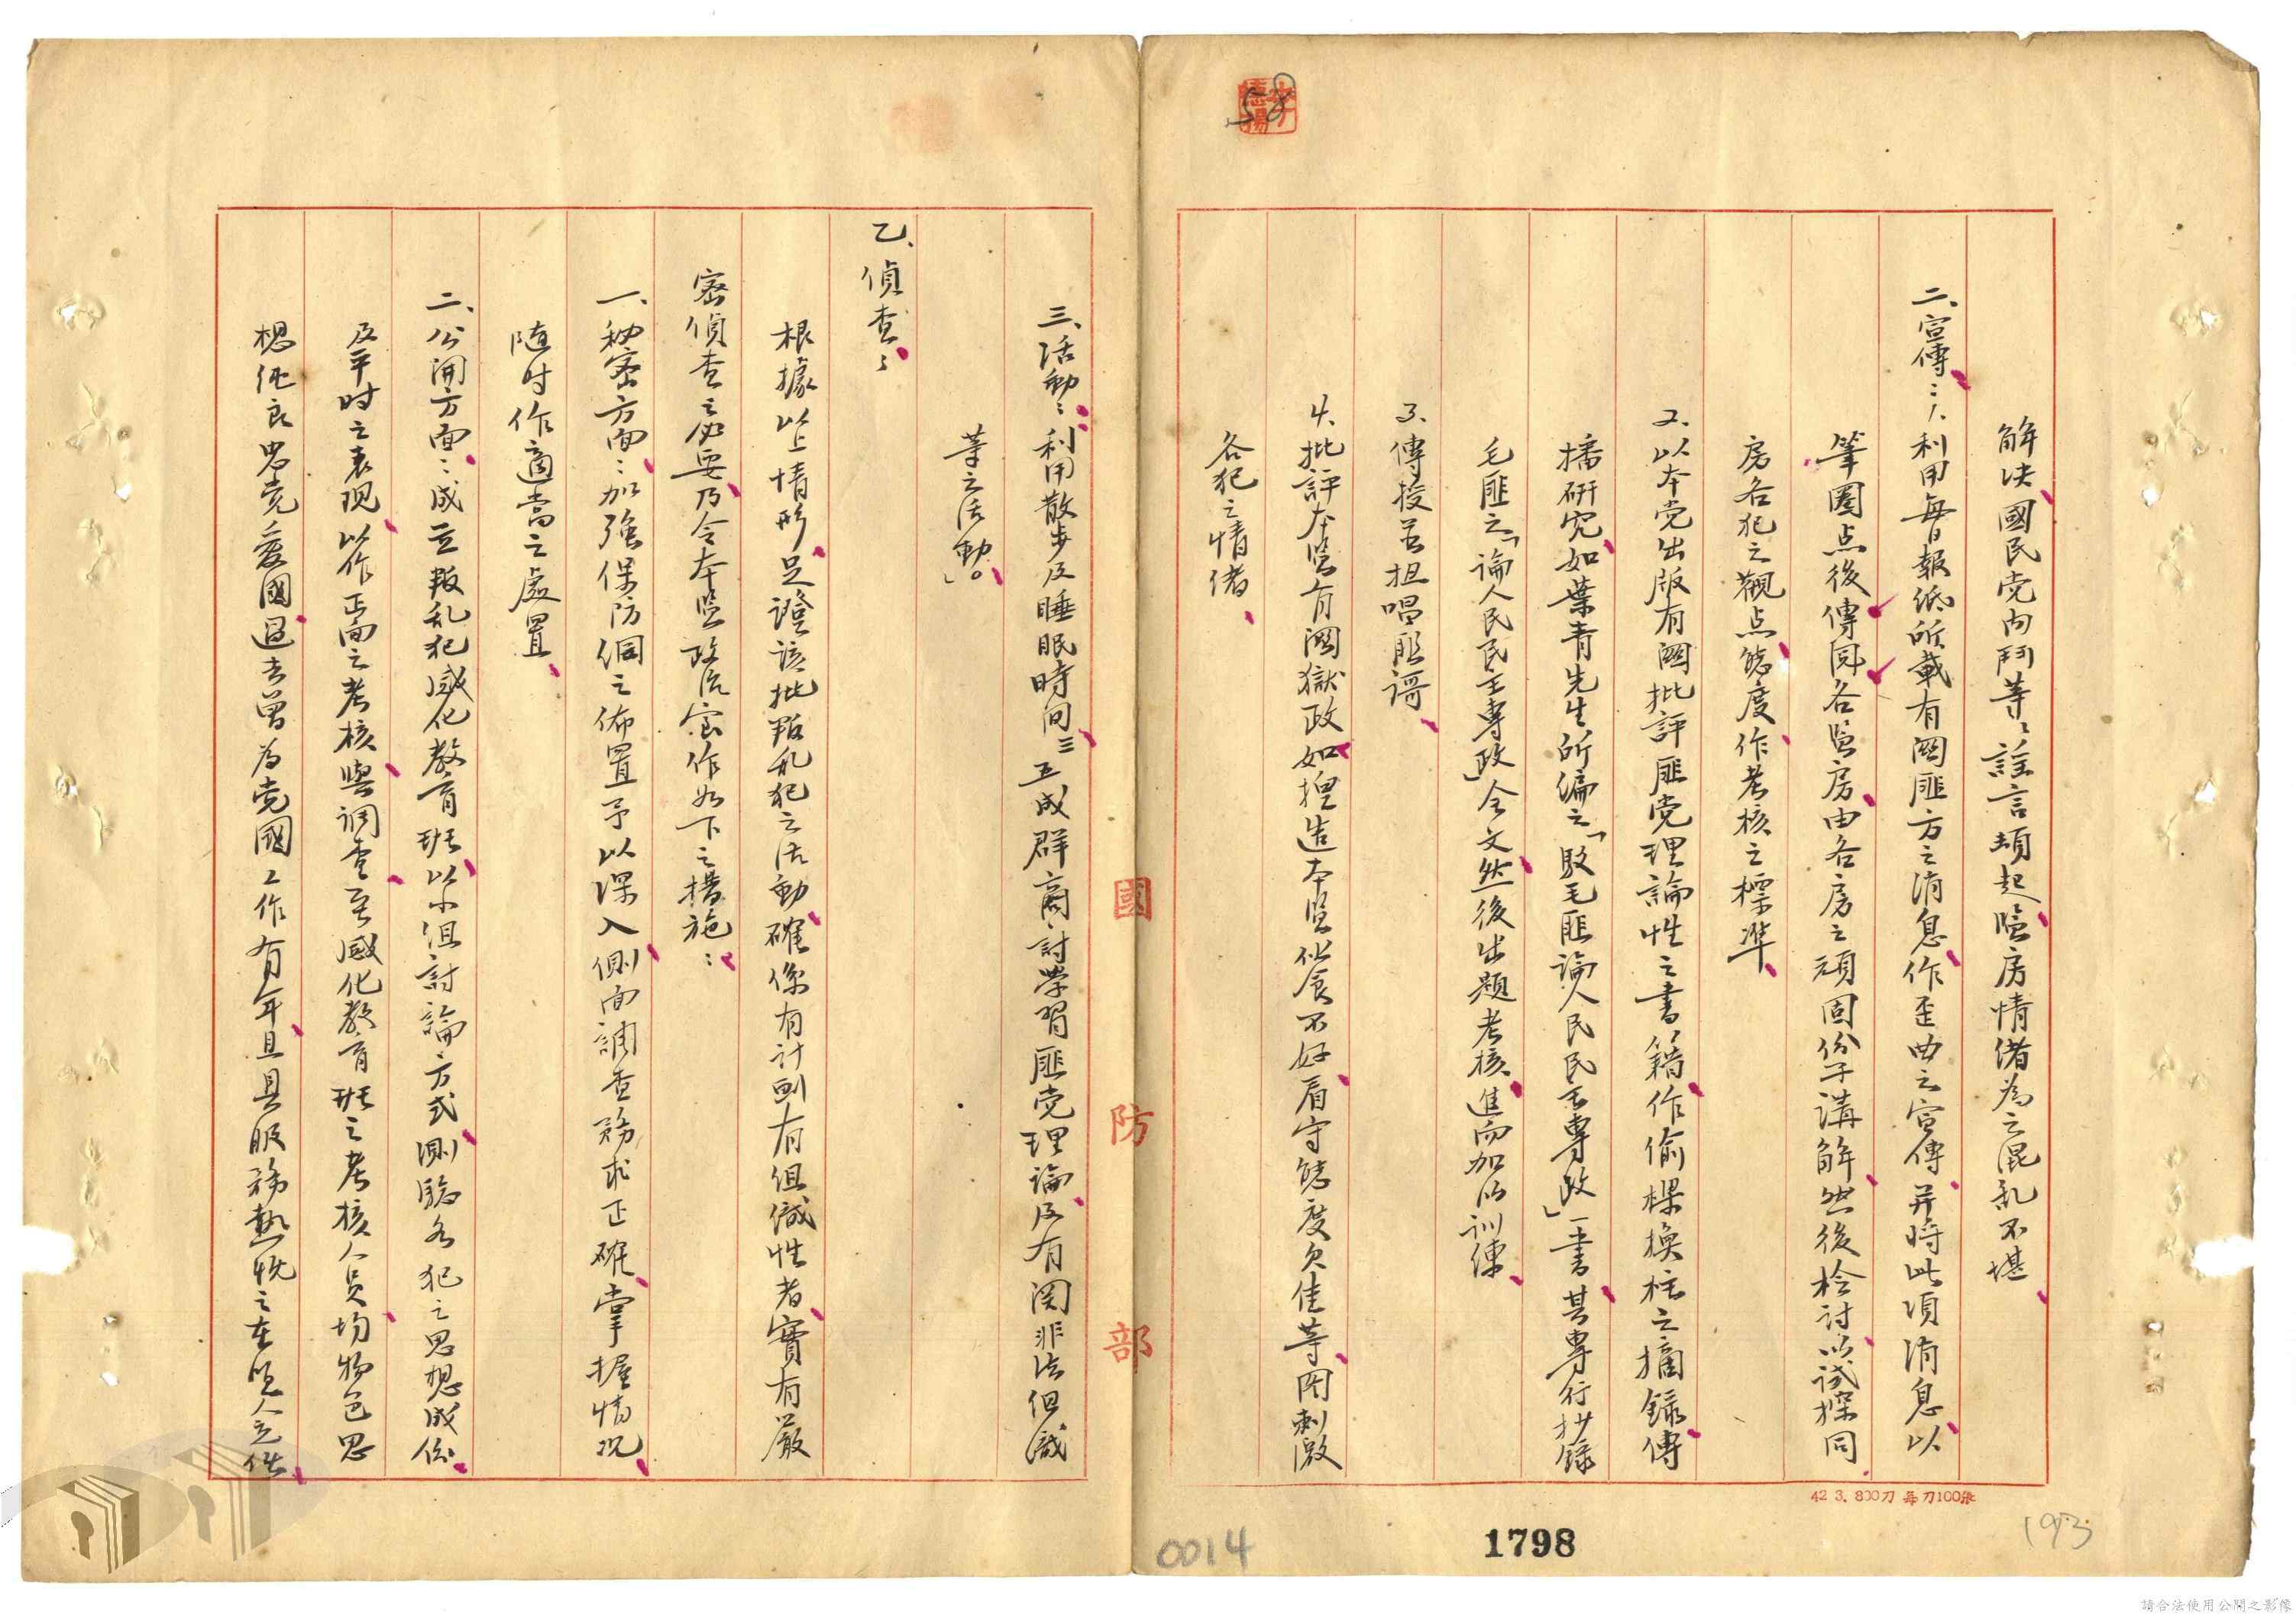 解決國民党內鬥等謠言頓起監房情緒為之混乱不堪
二、宣傳：1.利用每日報紙所載有関匪方之消息作歪曲之宣傳并將此項消息以
筆圈点後傳閱各監房由各房之頑固份子講解然後檢討以試探同
房各犯之觀点態度作考核之標準
2.以本党出版有関批評匪党理論性之書籍作偷樑換柱之摘錄傳
播研究如葉青先生所編之「駁毛匪論人民民主專政」一書其專行抄錄
毛匪之「論人民民主專政」全文然後出題考核進而加以訓練
3.傳授并担唱匪謌
4.批評本監有関獄政如捏造本監伙食不好看守態度欠佳等因刺激
各犯之情緒
三、活動：利用散步及睡眠時间三五成群商討學習匪党理論及有関非法组織
等之活動。」
乙、偵查：
根據以上情形足證該批叛乱犯之活動確係有計劃有组織性者實有嚴
密偵查之必要乃令本監政治室作如下之措施：
一、秘密方面：加強保防佣之佈置予以深入側面調查務求正確掌握情況
隨时作適當之處置
二、公開方面：成立叛乱犯感化教育班以小组討論方式測驗各犯之思想成份
及平时之表現以作正面之考核與调查至感化教育班之考核人员均物色思
想純良忠党愛國過去曾為党國工作有年且具服務熱忱之在監人充任
國防部
58
42 3. 800刀 每刀100張
193
1798
0014
請合法使用公開之影像